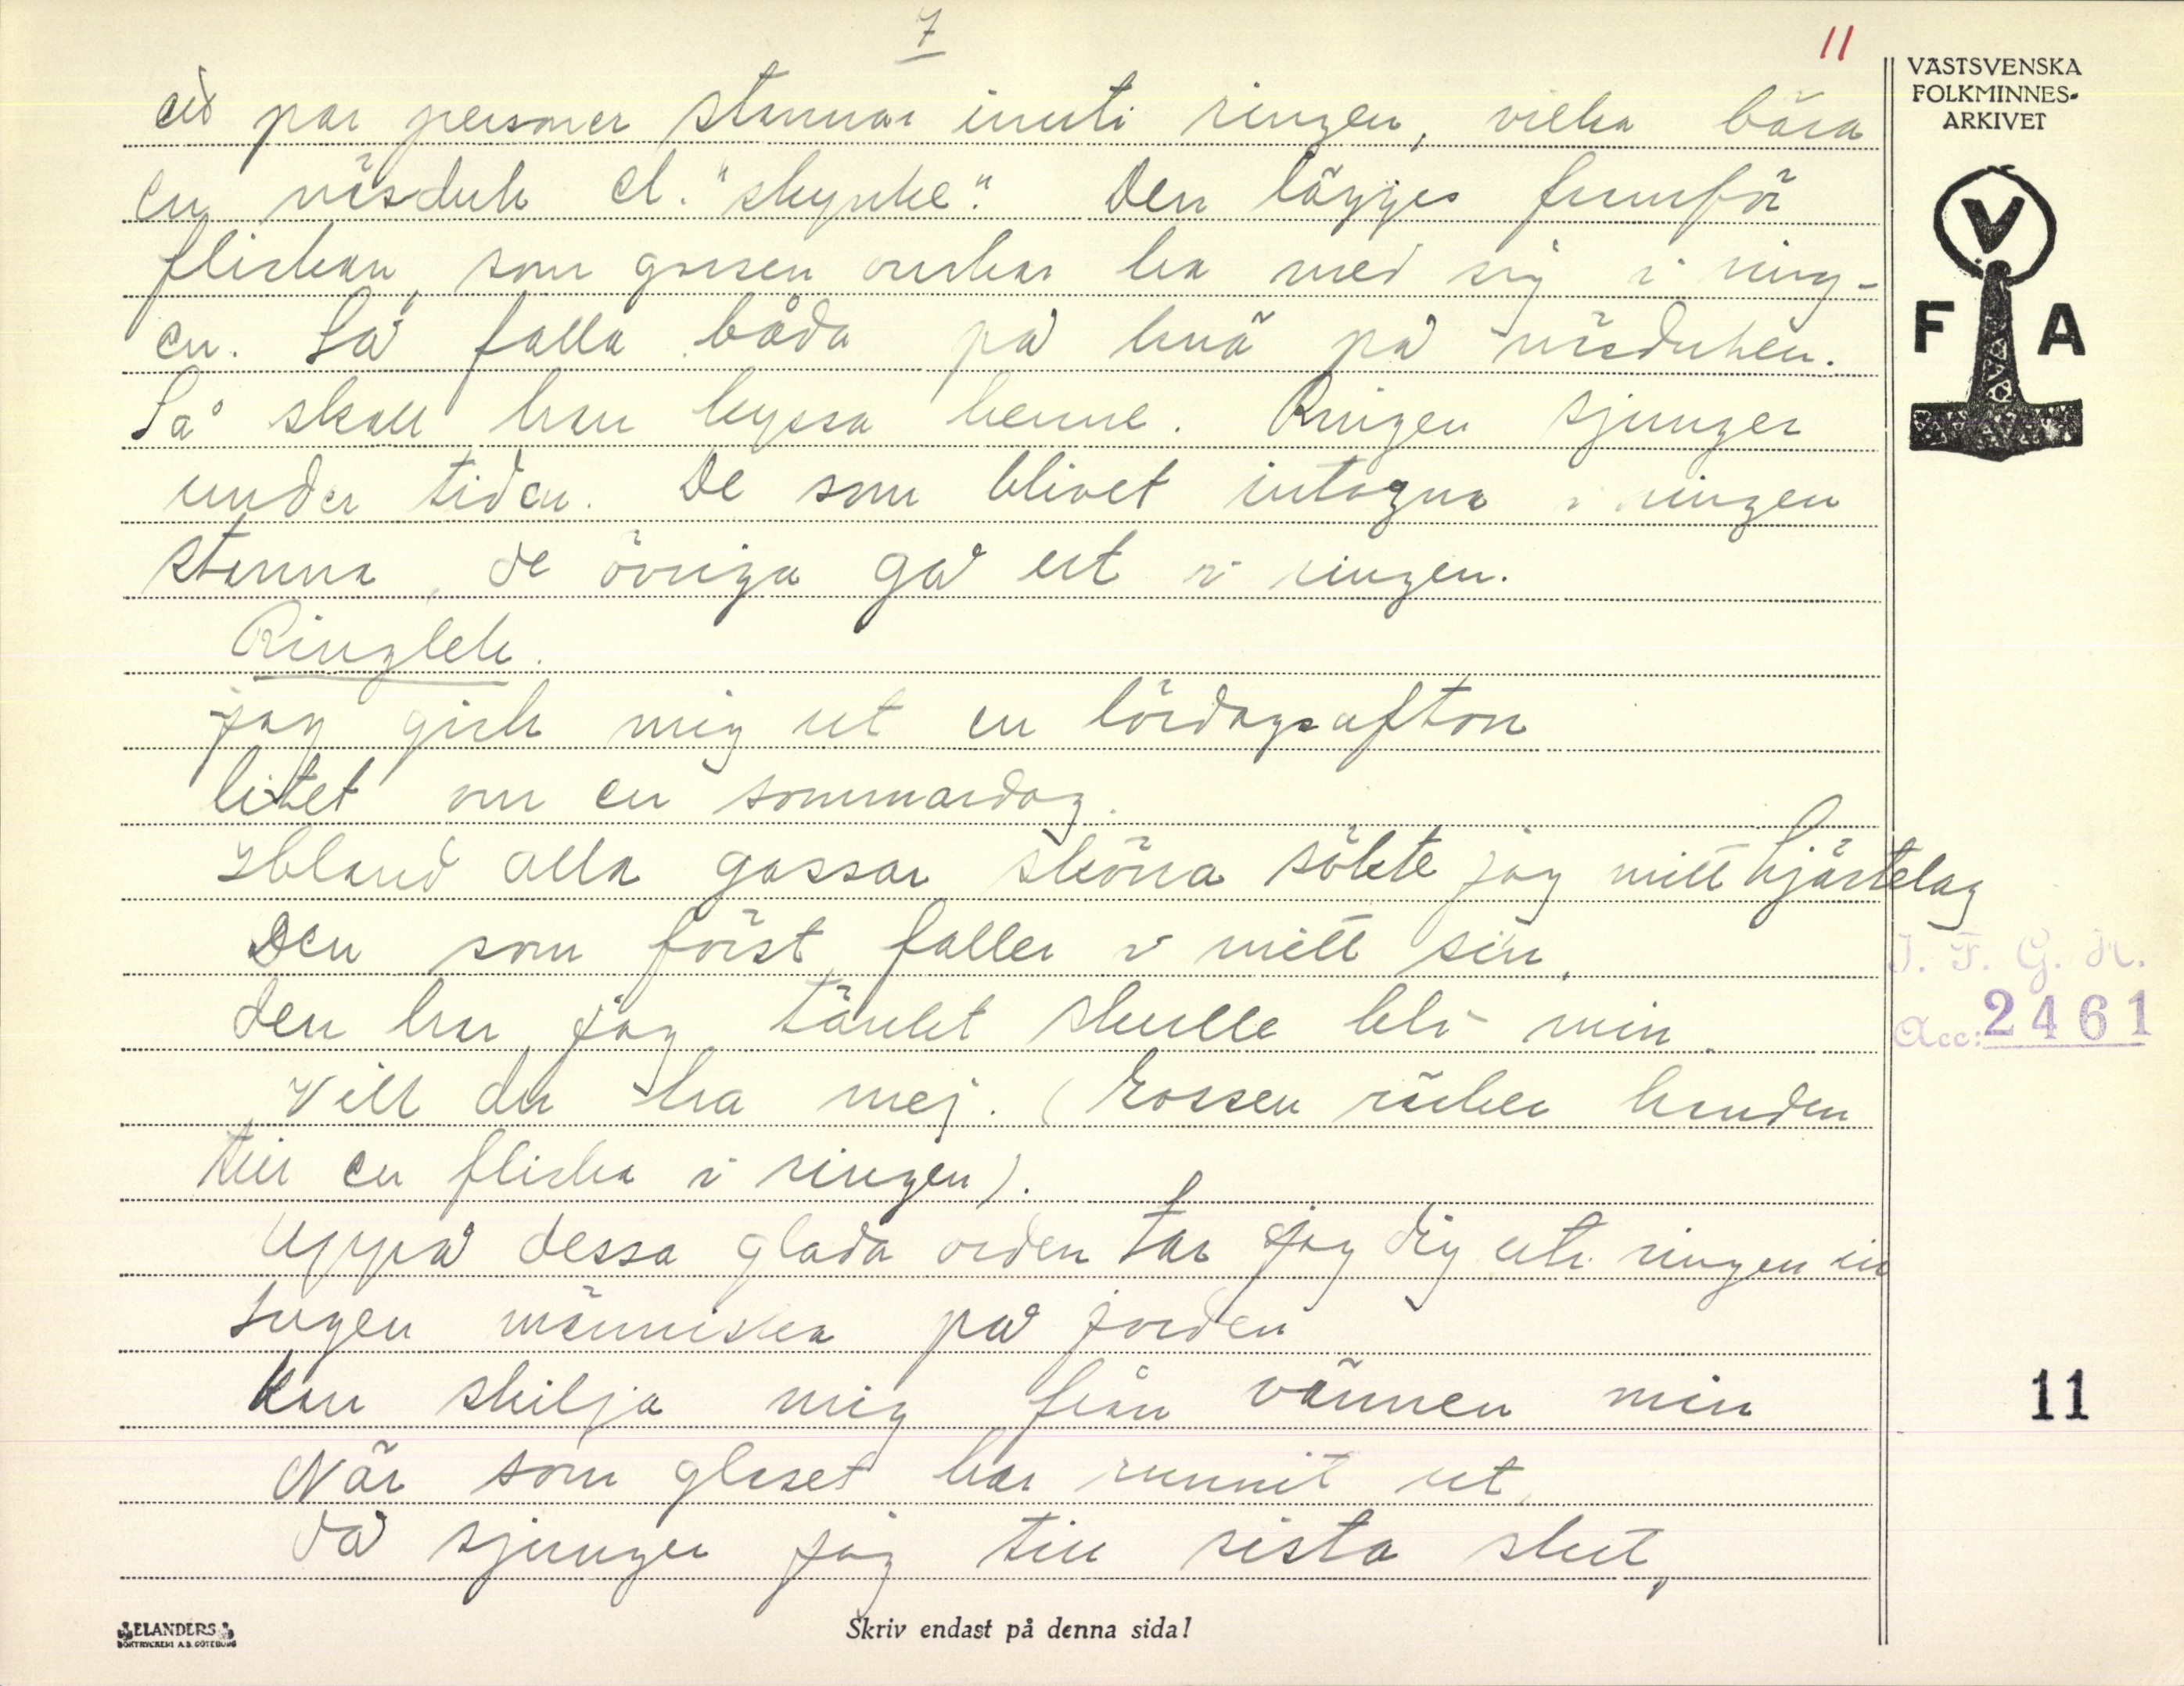 7
11
VÄSTSVENSKA
FOLKMINNES-
ARKIVET
V
F A
ett par personer stannar inuti ringen, vilka bära
en näsduk el. "skynke". Den lägges framför
flickan, som gossen önskar ha med sig i ring-
en. Så falla båda på knä på näsduken.
Så skall han kyssa henne. Ringen sjunger
under tiden. De som blivet intagna i ringen
stanna, de övriga gå ut i ringen.
Ringlek.
jag gick mig ut en lördagsafton
litet om en sommardag.
Ibland alla gossar sköna sökte jag mitt hjärtelag
Den som först faller i mitt sin,
den har jag tänkt skulle bli min.
Vill du ha mej. (Gossen räcker handen
till en flicka i ringen).
Uppå dessa glada orden tar jag dig uti ringen in
Ingen människa på jorden
kan skilja mig från vännen min
När som glaset har runnit ut,
då sjunger jag till sista slut,
I. F. G. H.
Acc: 2461
11
ELANDERS
BOKTRYCKERI A.B. GÖTEBORG
Skriv endast på denna sida!